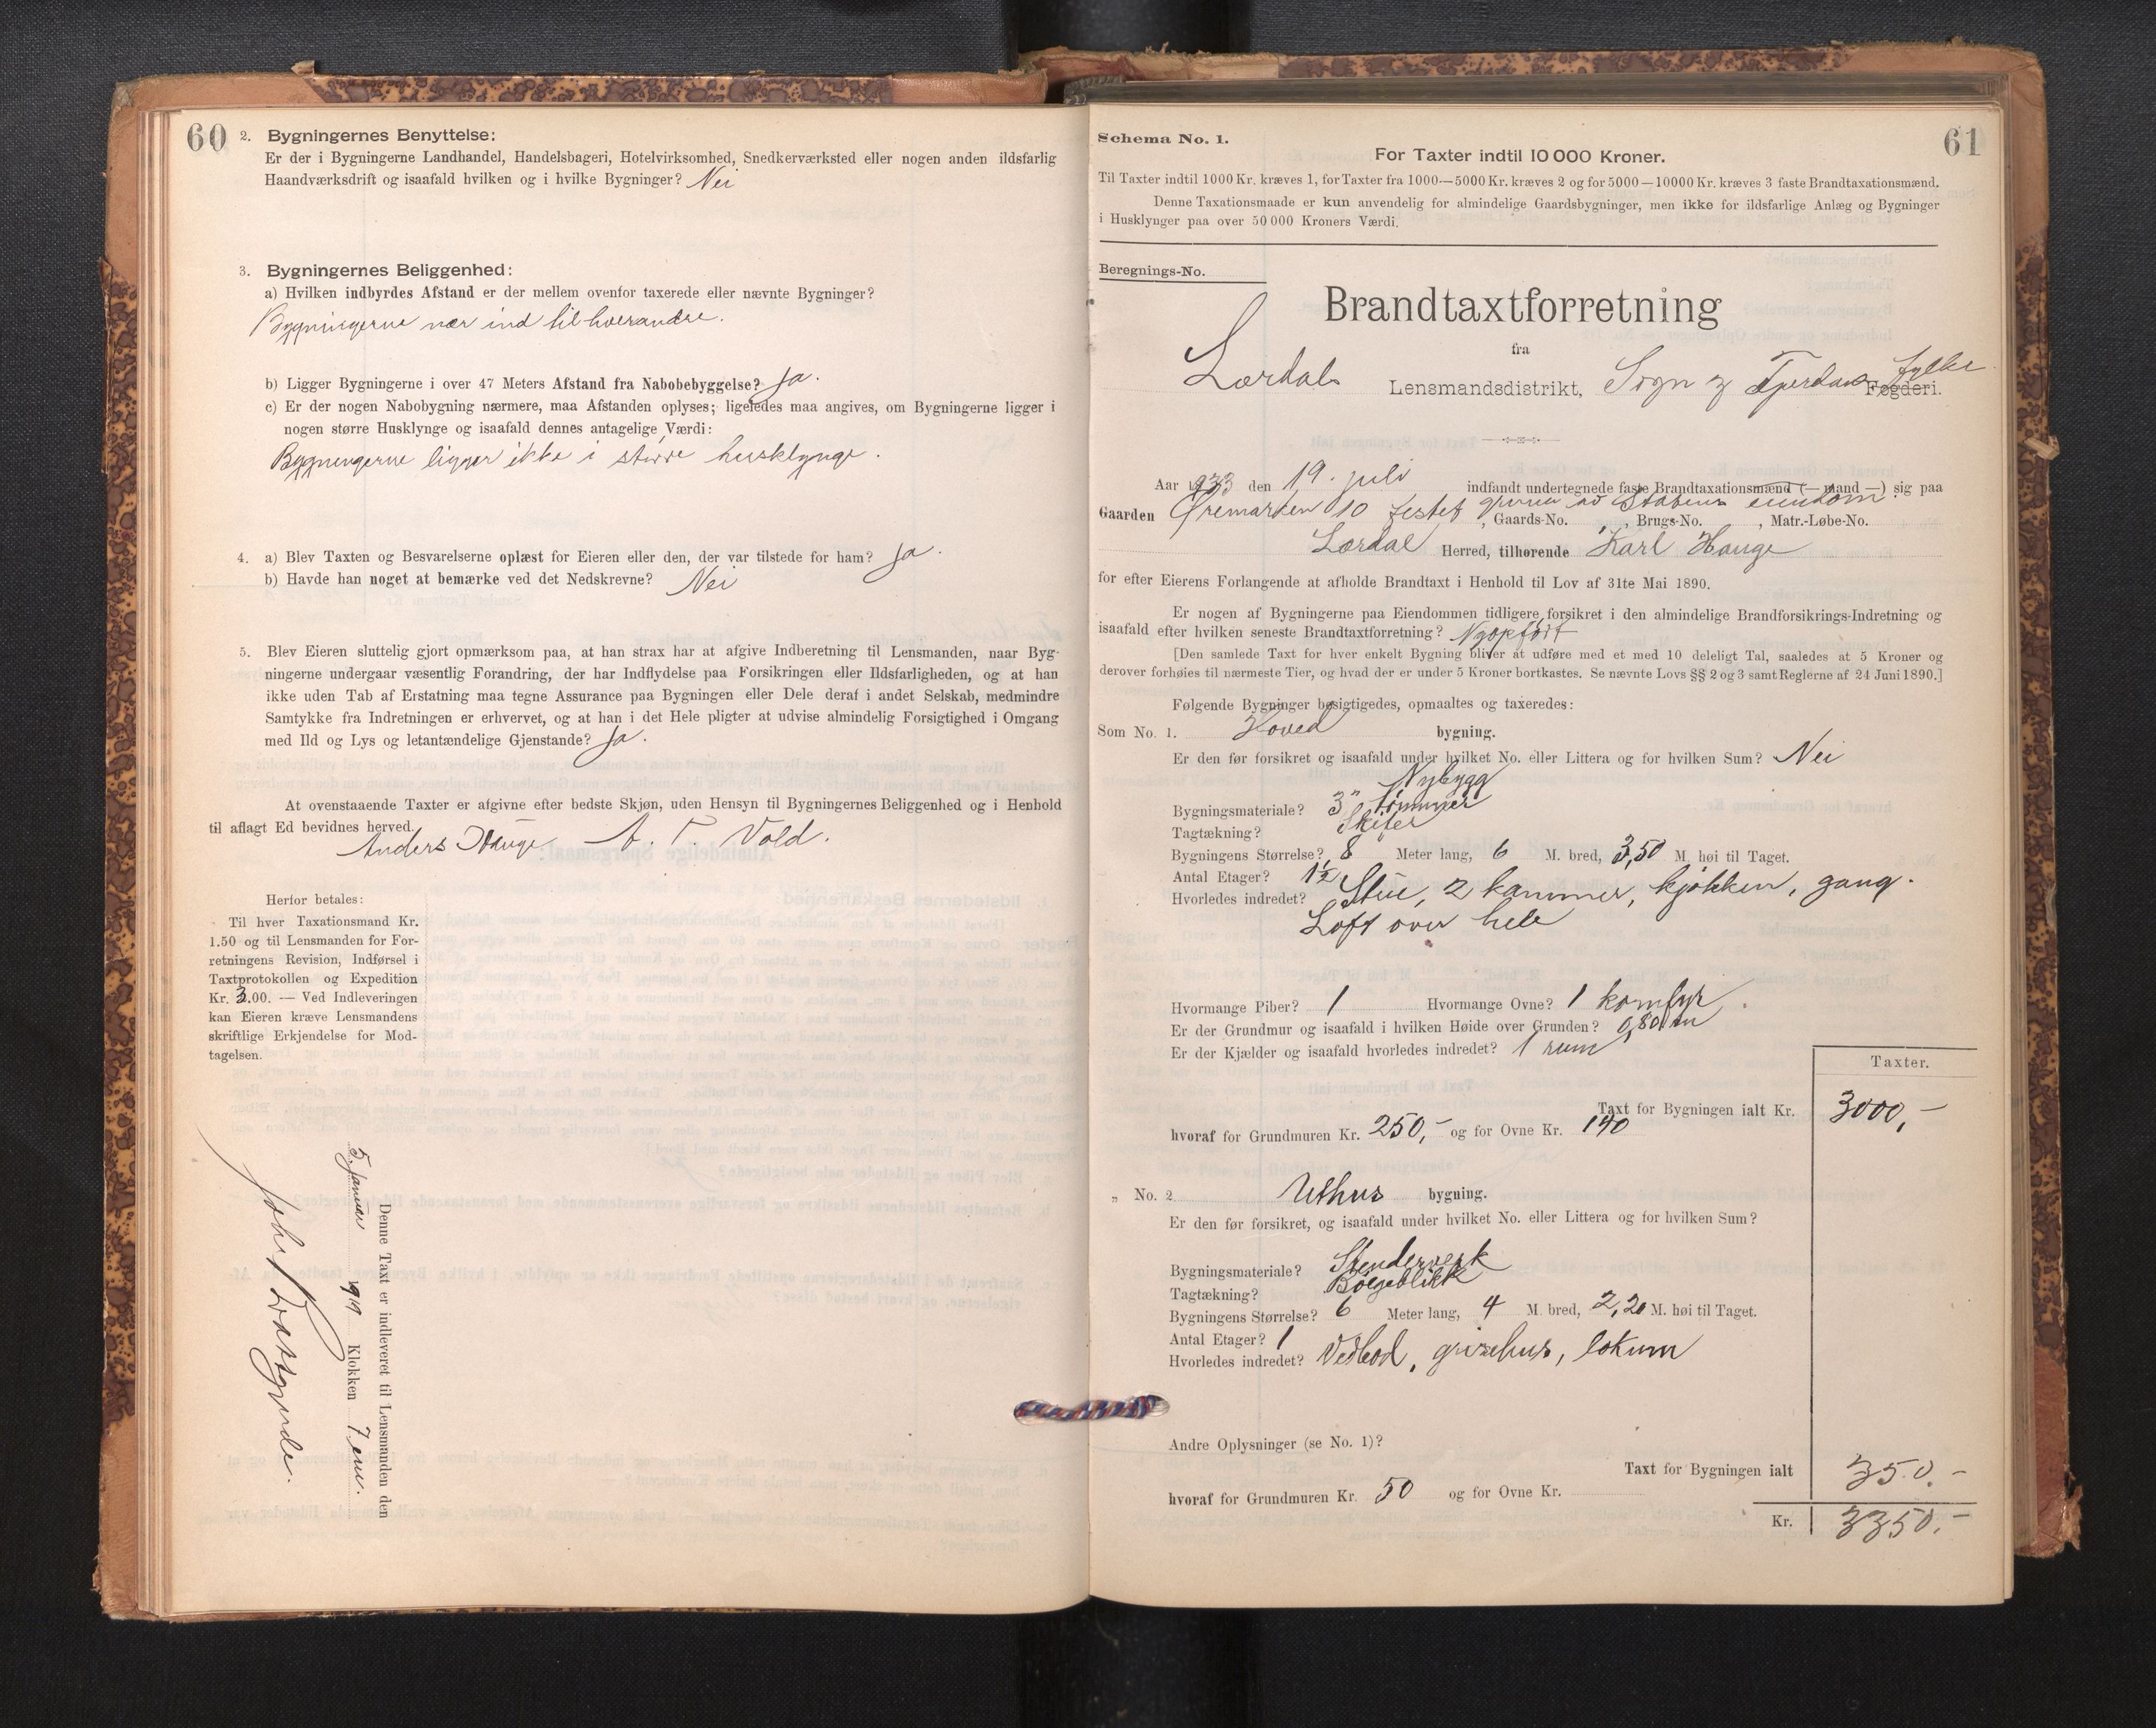 60
2. Bygningernes Benyttelse:
Er der i Bygningerne Landhandel, Handelsbageri, Hotelvirksomhed, Snedkerværksted eller nogen anden ildsfarlig
Haandværksdrift og isaafald hvilken og i hvilke Bygninger? Nei
3. Bygningernes Beliggenhed:
a) Hvilken indbyrdes Afstand er der mellem ovenfor taxerede eller nævnte Bygninger?
Bygningerne nær ind til hverandre.
b) Ligger Bygningerne i over 47 Meters Afstand fra Nabobebyggelse? Ja.
c) Er der nogen Nabobygning nærmere, maa Afstanden oplyses; ligeledes maa angives, om Bygningerne ligger i
nogen større Husklynge og isaafald dennes antagelige Værdi:
Bygningerne ligger ikke i større husklynge.
4. a) Blev Taxten og Besvarelserne oplæst for Eieren eller den, der var tilstede for ham? Ja.
b) Havde han noget at bemærke ved det Nedskrevne? Nei
5. Blev Eieren sluttelig gjort opmærksom paa, at han strax har at afgive Indberetning til Lensmanden, naar Byg-
ningerne undergaar væsentlig Forandring, der har Indflydelse paa Forsikringen eller Ildsfarligheden, og at han
ikke uden Tab af Erstatning maa tegne Assurance paa Bygningen eller Dele deraf i andet Selskab, medmindre
Samtykke fra Indretningen er erhvervet, og at han i det Hele pligter at udvise almindelig Forsigtighed i Omgang
med Ild og Lys og letantændelige Gjenstande? Ja.
At ovenstaaende Taxter er afgivne efter bedste Skjøn, uden Hensyn til Bygningernes Beliggenhed og i Henhold
til aflagt Ed bevidnes herved.
Anders Hauge A. T. Vold.
Herfor betales:
Til hver Taxationsmand Kr.
1.50 og til Lensmanden for For-
retningens Revision, Indførsel i
Taxtprotokollen og Expedition
Kr. 3.00. — Ved Indleveringen
kan Eieren kræve Lensmandens
skriftlige Erkjendelse for Mod-
tagelsen.
Denne Taxt er indleveret til Lensmanden den
5. Januar 19 Klokken 7 em.
61
Schema No. 1.
For Taxter indtil 10 000 Kroner.
Til Taxter indtil 1000 Kr. kræves 1, for Taxter fra 1000—5000 Kr. kræves 2 og for 5000—10000 Kr. kræves 3 faste Brandtaxationsmænd.
Denne Taxationsmaade er kun anvendelig for almindelige Gaardsbygninger, men ikke for ildsfarlige Anlæg og Bygninger
i Husklynger paa over 50 000 Kroners Værdi.
Beregnings-No.
Brandtaxtforretning
fra
Lærdals Lensmandsdistrikt, Sogn og Fjordane fylke Fogderi.
Aar 1933 den 19. juli indfandt undertegnede faste Brandtaxationsmænd (— mand —) sig paa
Gaarden Øremarken 10 festet grunn av Statens eiendom, Gaards-No. , Brugs-No. , Matr.-Løbe-No.
Lærdal Herred, tilhørende Karl Hauge
for efter Eierens Forlangende at afholde Brandtaxt i Henhold til Lov af 31te Mai 1890.
Er nogen af Bygningerne paa Eiendommen tidligere forsikret i den almindelige Brandforsikrings-Indretning og
isaafald efter hvilken seneste Brandtaxtforretning? Nyopført
[Den samlede Taxt for hver enkelt Bygning bliver at udføre med et med 10 deleligt Tal, saaledes at 5 Kroner og
derover forhøies til nærmeste Tier, og hvad der er under 5 Kroner bortkastes. Se nævnte Lovs §§ 2 og 3 samt Reglerne af 24 Juni 1890.]
Følgende Bygninger besigtigedes, opmaaltes og taxeredes:
Som No. 1. Hoved bygning.
Er den før forsikret og isaafald under hvilket No. eller Littera og for hvilken Sum? Nei
Nybygg
Bygningsmateriale? 3" tømmer
Tagtækning? Skifer
Bygningens Størrelse? 8 Meter lang, 6 M. bred, 3,50 M. høi til Taget.
Antal Etager? 1½
Hvorledes indredet? Stue, 2 kammer, kjøkken, gang.
Loft over hele
Hvormange Piber? 1 Hvormange Ovne? 1 komfyr.
Er der Grundmur og isaafald i hvilken Høide over Grunden? 0,80 m
Er der Kjælder og isaafald hvorledes indredet? 1 rum
Taxter.
Taxt for Bygningen ialt Kr. 3000,-
hvoraf for Grundmuren Kr. 250,- og for Ovne Kr. 140
„ No. 2 Uthus bygning.
Er den før forsikret, og isaafald under hvilket No. eller Littera og for hvilken Sum?
Bygningsmateriale? Stenderverk
Tagtækning? Bølgeblikk
Bygningens Størrelse? 6 Meter lang, 4 M. bred, 2,20 M. høi til Taget.
Antal Etager? 1
Hvorledes indredet? Vedbod, grisehus, lokum
Andre Oplysninger (se No. 1)?
Taxt for Bygningen ialt 350.-
hvoraf for Grundmuren Kr. 50 og for Ovne Kr.
Kr. 3350.-